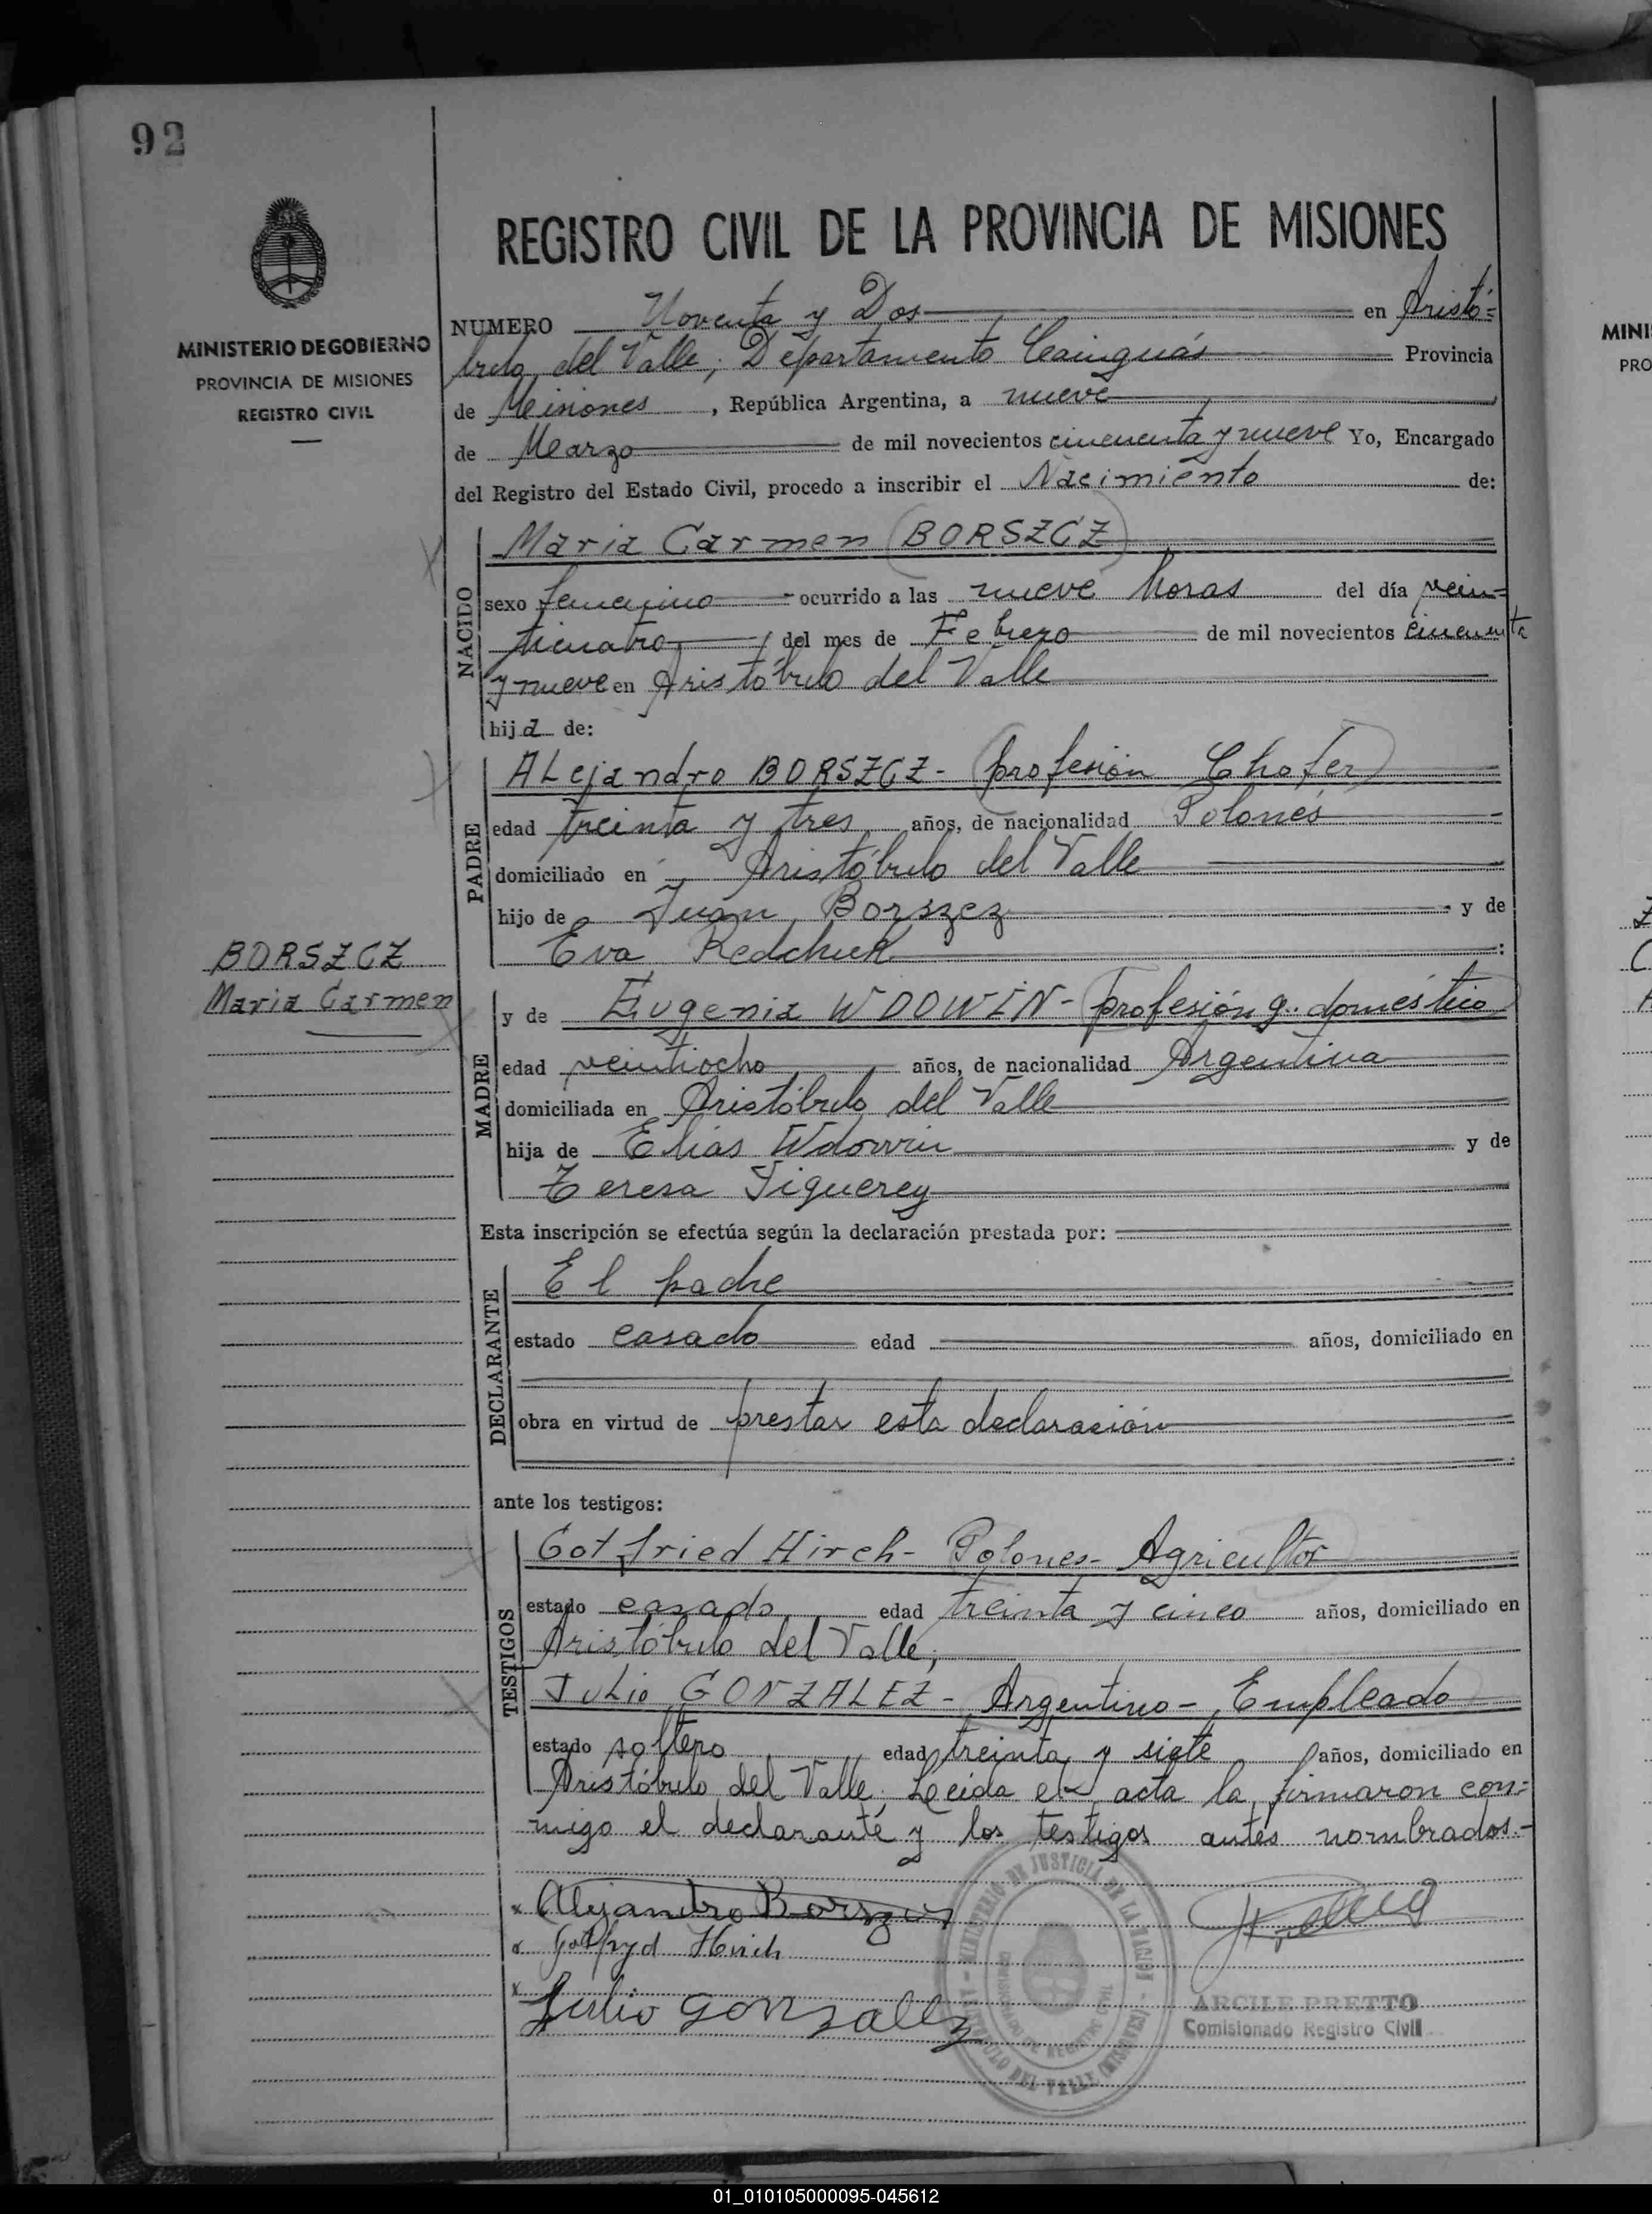 92
MINISTERIO DE GOBIERNO
PROVINCIA DE MISIONES
REGISTRO CIVIL
REGISTRO CIVIL DE LA PROVINCIA DE MISIONES
NUMERO Noventa y Dos en Aristó=
bulo del Valle, Departamento Cainguás Provincia
de Misiones, República Argentina, a nueve
de Marzo de mil novecientos cincuenta y nueve Yo, Encargado
del Registro del Estado Civil, procedo a inscribir el Nacimiento de:
NACIDO
Maria Carmen (BORSZCZ)
sexo femenino ocurrido a las nueve horas del día vein=
ticuatro del mes de Febrero de mil novecientos cincuenta
y nueve en Aristóbulo del Valle
hija de:
PADRE
ALejandro BORSZCZ- (profesión Chofer)
edad treinta y tres años, de nacionalidad Polonés
domiciliado en Aristóbulo del Valle
hijo de Juan Borszcz y de
Eva Redchuk
BORSZCZ
Maria Carmen
MADRE
y de Eugenia WDOWIN- (profesión q. doméstico)
edad veintiocho años, de nacionalidad Argentina
domiciliada en Aristóbulo del Valle
hija de Elias Wdowin y de
Teresa Figuerey
Esta inscripción se efectúa según la declaración prestada por:
DECLARANTE
El padre
estado casado edad años, domiciliado en
obra en virtud de prestar esta declaración
ante los testigos:
TESTIGOS
Gotfried Hirch- Polones- Agricultor
estado casado edad treinta y cinco años, domiciliado en
Aristóbulo del Valle;
JuLio GONZALEZ- Argentino- Empleado
estado soltero edad treinta y siete años, domiciliado en
Aristóbulo del Valle. Leida el acta la firmaron con=
migo el declarante y los testigos antes nombrados.-
x Alejandro Borszcz
x Gotfryd Hirich
x Julio Gonzalez
MINISTERIO DE JUSTICIA DE LA NACION
DEL VALLE (MISIONES)
ARCILE PRETTO
Comisionado Registro Civil
MINI
PRO
01_010105000095-045612